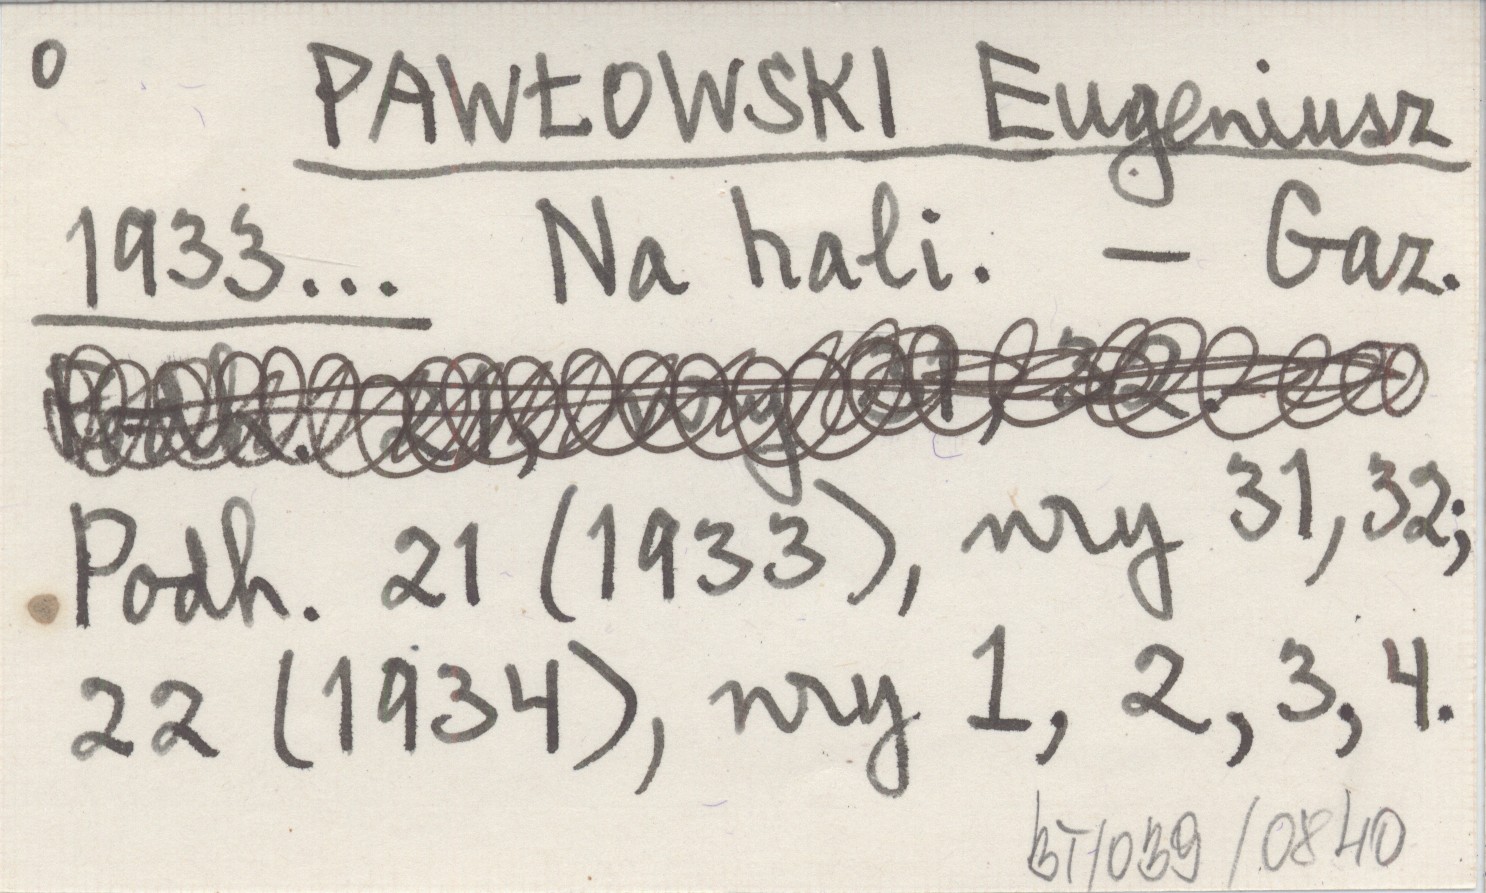 0 PAWŁOWSKI Eugeniusz
1933... Na hali. — Gaz.
Podh. 21, nry 31, 32.
Podh. 21 (1933), nry 31, 32;
22 (1934), nry 1, 2, 3, 4.
BT/039/0840